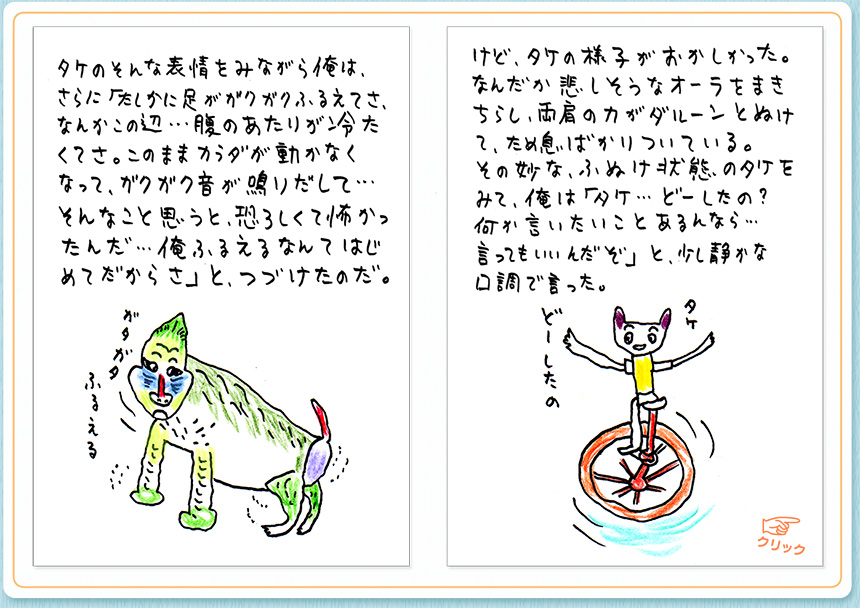 タケのそんな表情をみながら俺は、
さらに「たしかに足がガクガクふるえてさ、
なんかこの辺…腹のあたりが冷た
くてさ。このままカラダが動かなく
なって、ガクガク音が鳴りだして…
そんなこと思うと、恐ろしくて怖かっ
たんだ…俺ふるえるなんてはじ
めてだからさ」と、つづけたのだ。
ガタガタ
ふるえる
けど、タケの様子がおかしかった。
なんだか悲しそうなオーラをまき
ちらし、両肩の力がダルーンとぬけ
て、ため息ばかりついている。
その妙な、ふぬけ状態のタケを
みて、俺は「タケ…どーしたの？
何か言いたいことあるんなら…
言ってもいいんだぞ」と、少し静かな
口調で言った。
タケ
どーしたの
クリック